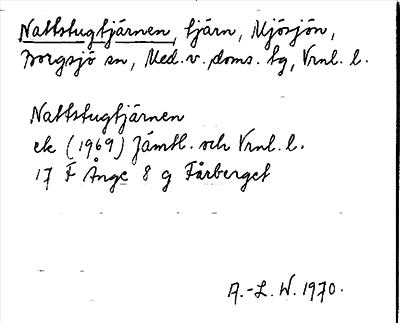 Nattstugtjärnen, tjärn, Mjösjön,
Borgsjö sn, Med. v. doms. tg, Vrnl. l.
Nattstugtjärnen
ek (1969) Jämtl. och Vrnl. l.
17 F Ånge 8 g Fårberget
A.-L. W. 1970.